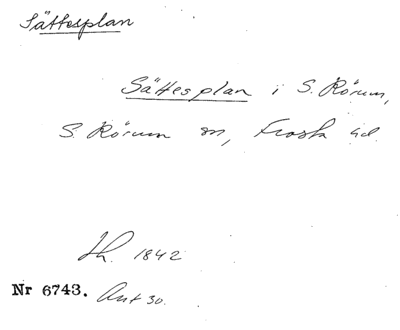 Sättesplan
Sättesplan i S. Rörum,
S. Rörum sn, Frosta hd.
Lh. 1842
Nr 6743. Ant 30.